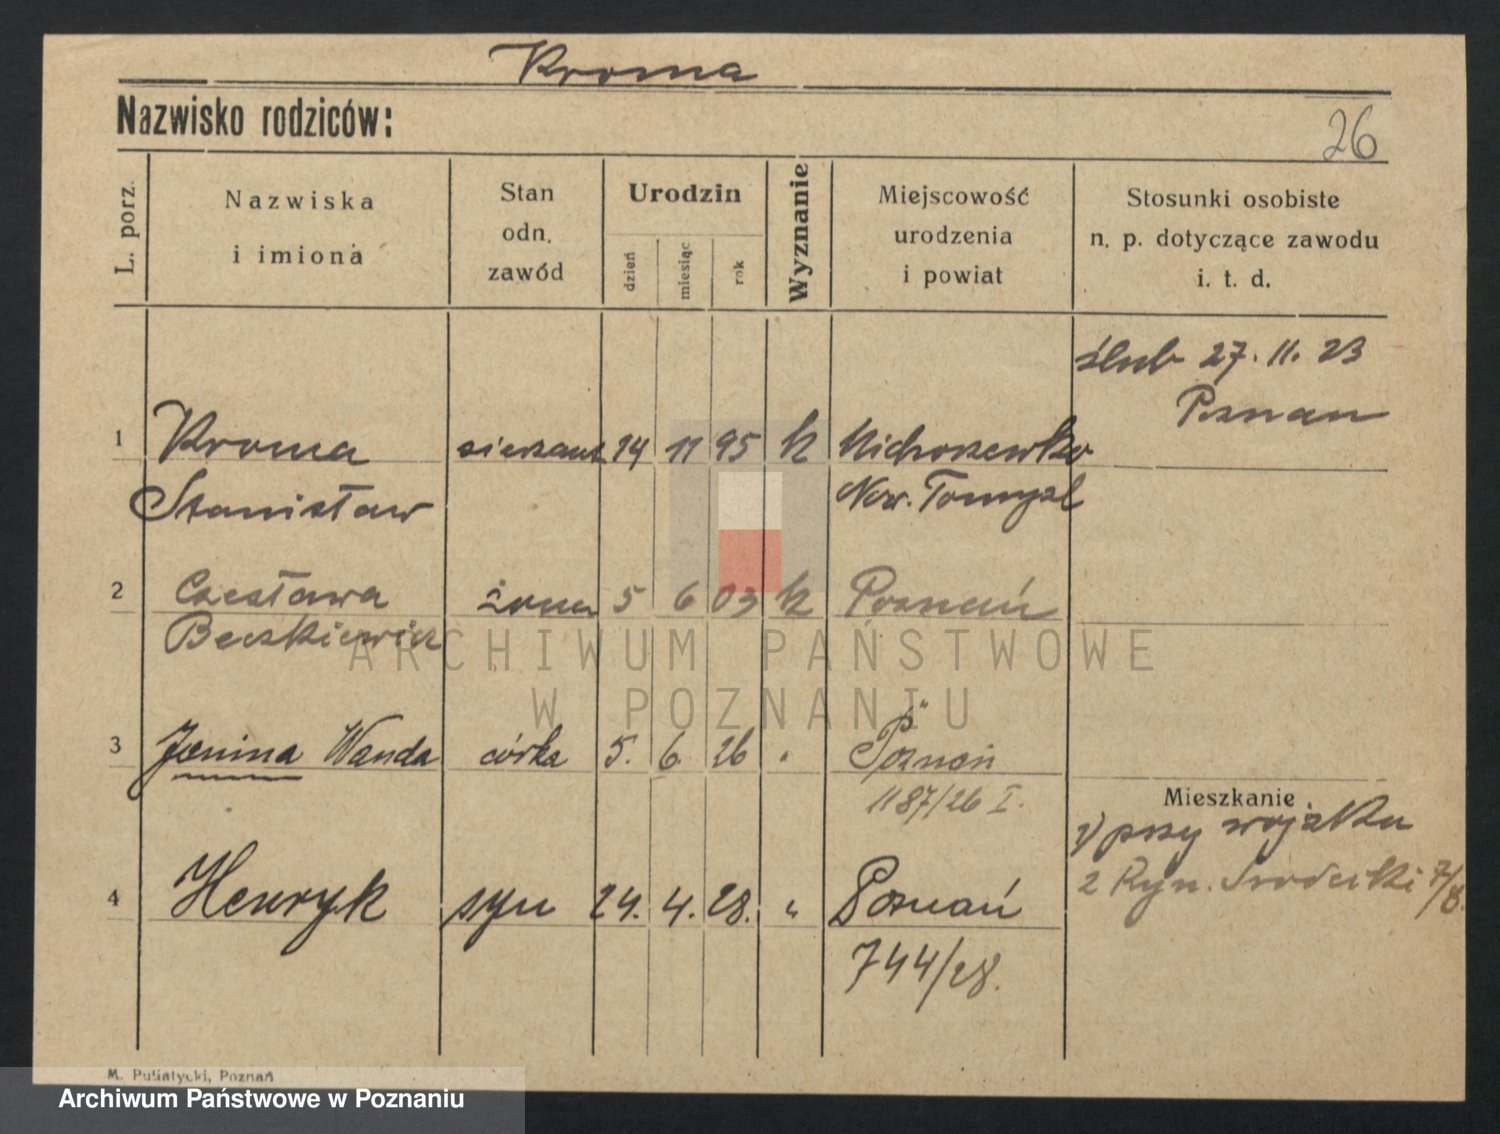 Kroma
Nazwisko rodziców:
26
L. porz.
Nazwiska
i imiona
Stan
odn.
zawód
Urodzin
dzień
miesiąc
rok
Wyznanie
Miejscowość
urodzenia
i powiat
Stosunki osobiste
n. p. dotyczące zawodu
i. t. d.
ślub 27.11.23
Poznań
1 Kroma sierżant 14 11 95 k Michorzewko
Stanisław Now. Tomyśl
2 Czesława żona 5 6 03 k Poznań
Beczkiewicz
ARCHIWUM PAŃSTWOWE
W POZNANIU
3 Janina Wanda córka 5. 6. 26 " Poznań
1187/26 I.
Mieszkanie
1) przy wojsku
2 Ryn. Śródecki 7/8.
4 Henryk syn 24. 4. 28. " Poznań
744/28.
M. Putiatycki, Poznań
Archiwum Państwowe w Poznaniu